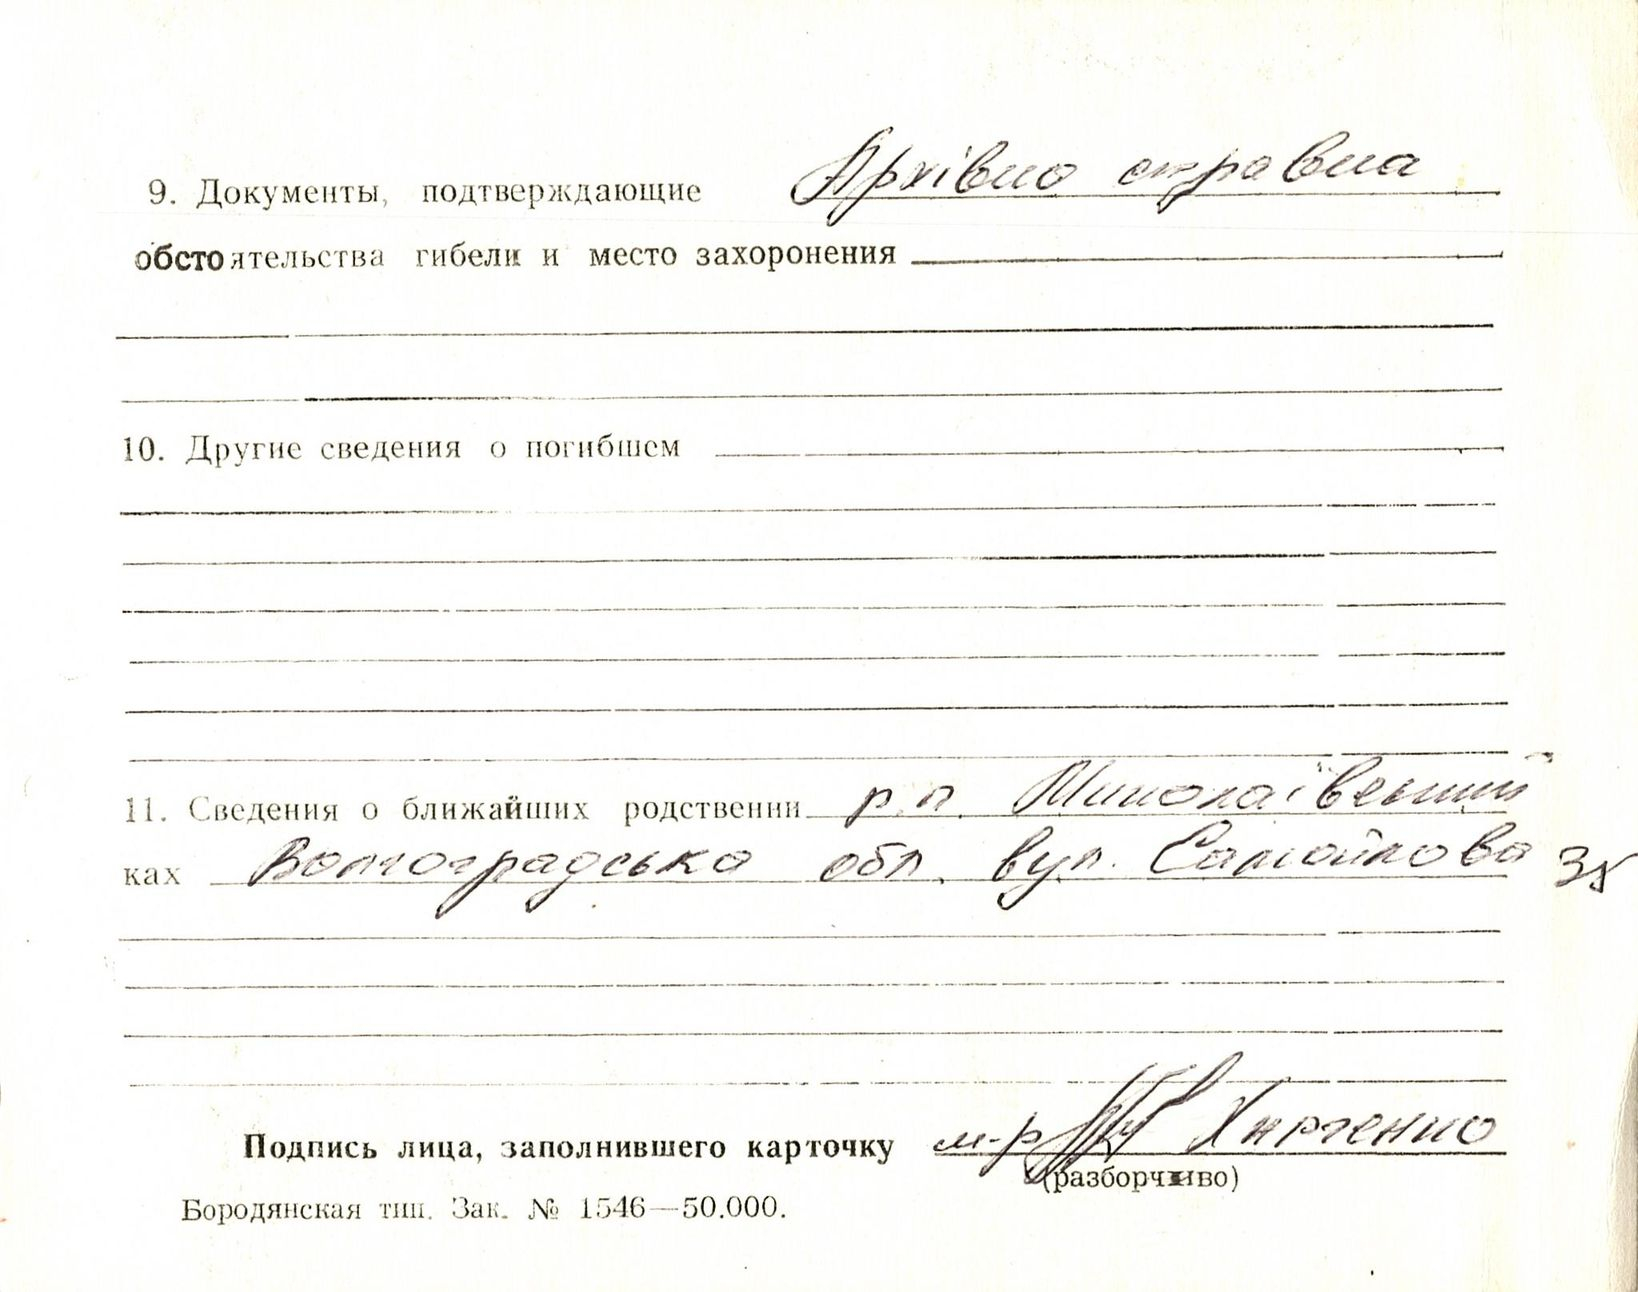 9. Документы, подтверждающие Архівно справка
обстоятельства гибели и место захоронения
10. Другие сведения о погибшем
11. Сведения о ближайших родственни р.п. Миколаївський
ках Волгоградська обл. вул. Самойлова
Подпись лица, заполнившего карточку м-р
(разборчиво)
Бородянская тип. Зак. № 1546—50.000.